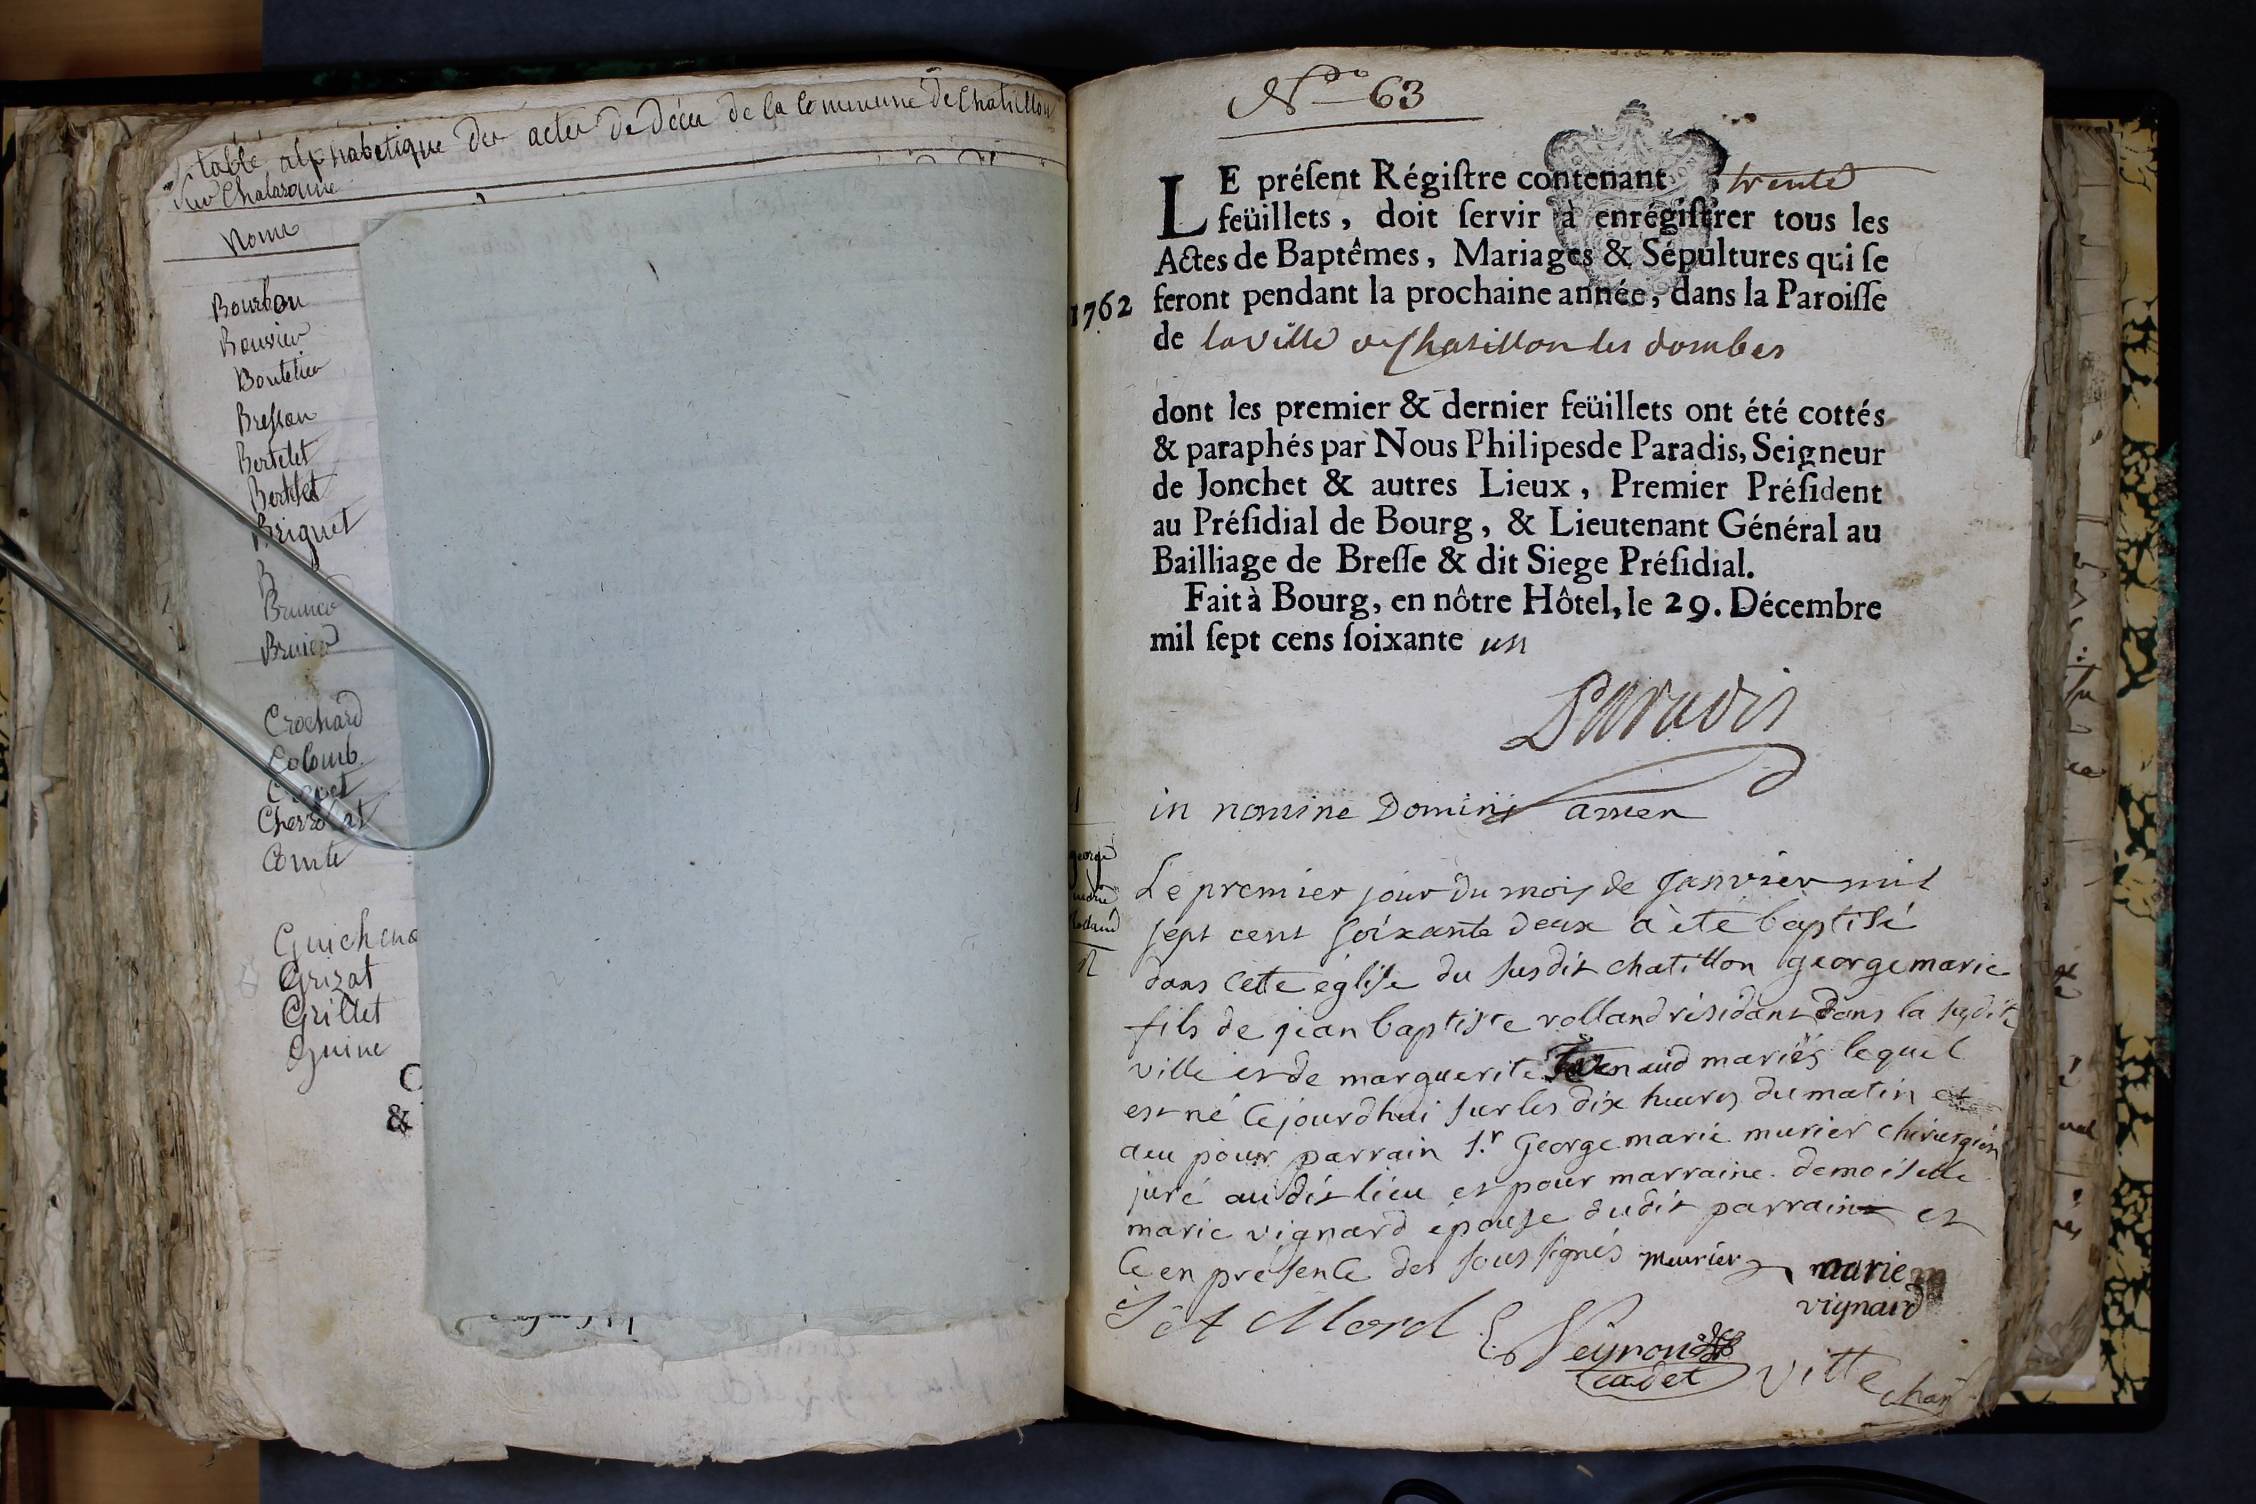 table alphabetique der acter De Décer de la Commune De Chatillon
Sur Chalaronne
Noms
Bourbon
Bouvier
Boutelier
Bresson
Bertelet
Bertelet
Briguet
B
Brunier
Crochard
Colomb
Comte
Guichena
Grizat
Grillet
Guine
C
&
No 63
LE préſent Régiſtre contenant trente
feüillets, doit ſervir à enrégiſtrer tous les
Actes de Baptêmes, Mariages & Sépultures qui ſe
1762 feront pendant la prochaine année, dans la Paroiſſe
de la Ville de Chatillon les dombes
dont les premier & dernier feüillets ont été cottés
& paraphés par Nous Philipes de Paradis, Seigneur
de Jonchet & autres Lieux, Premier Préſident
au Préſidial de Bourg, & Lieutenant Général au
Bailliage de Breſſe & dit Siege Préſidial.
Fait à Bourg, en nôtre Hôtel, le 29. Décembre
mil ſept cens ſoixante un
Paradis
in nomine Domini amen
1
george
marie
Rolland
Le premier jour du mois de Janvier mil
sept cent soixante deux à été baptisé
dans cette église du susdit chatillon george marie
fils de jean baptiste rolland résidant dans la susdite
ville et de marguerite mariés lequel
est né cejourdhui sur les dix heures du matin et
a eu pour parrain Sr. George marie murier chirurgien
juré audit lieu et pour marraine demoiselle
marie vignard épouse dudit parrain et
ce en présence des sous signés meurier marie
vignard
Peyron
Cadet
Vitte chan